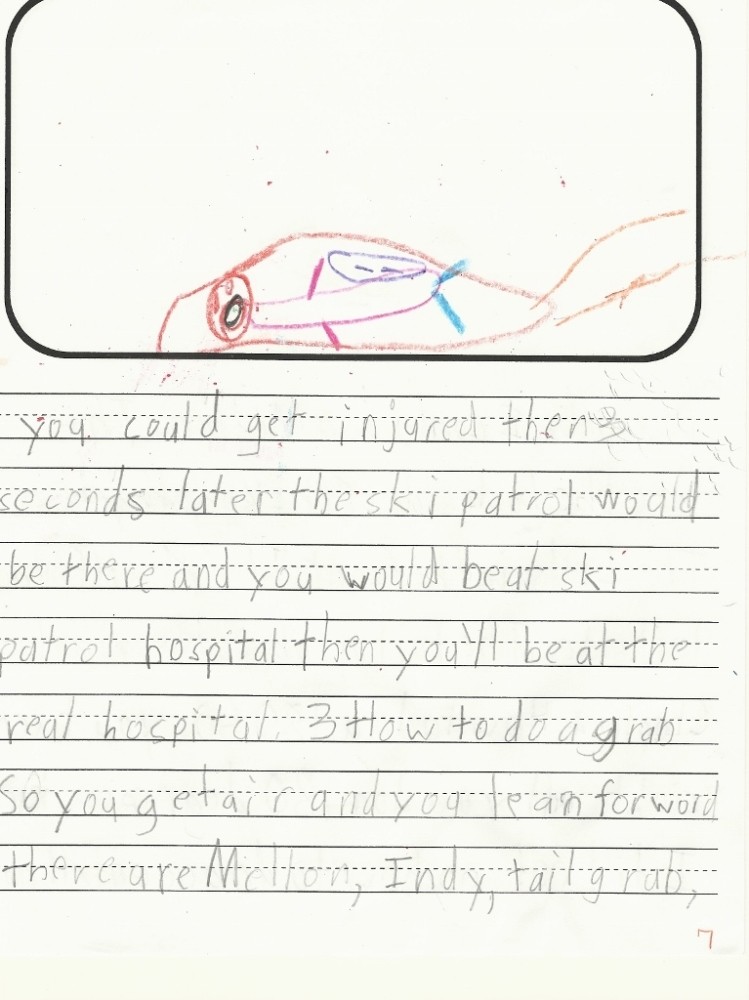 you could get injured then 3
seconds later the ski patrol would
be there and you would be at ski
patrol hospital then you'll be at the
real hospital. 3 How to do a grab
So you get air and you lean forword
there are Mellon, Indy, tail grab,
7